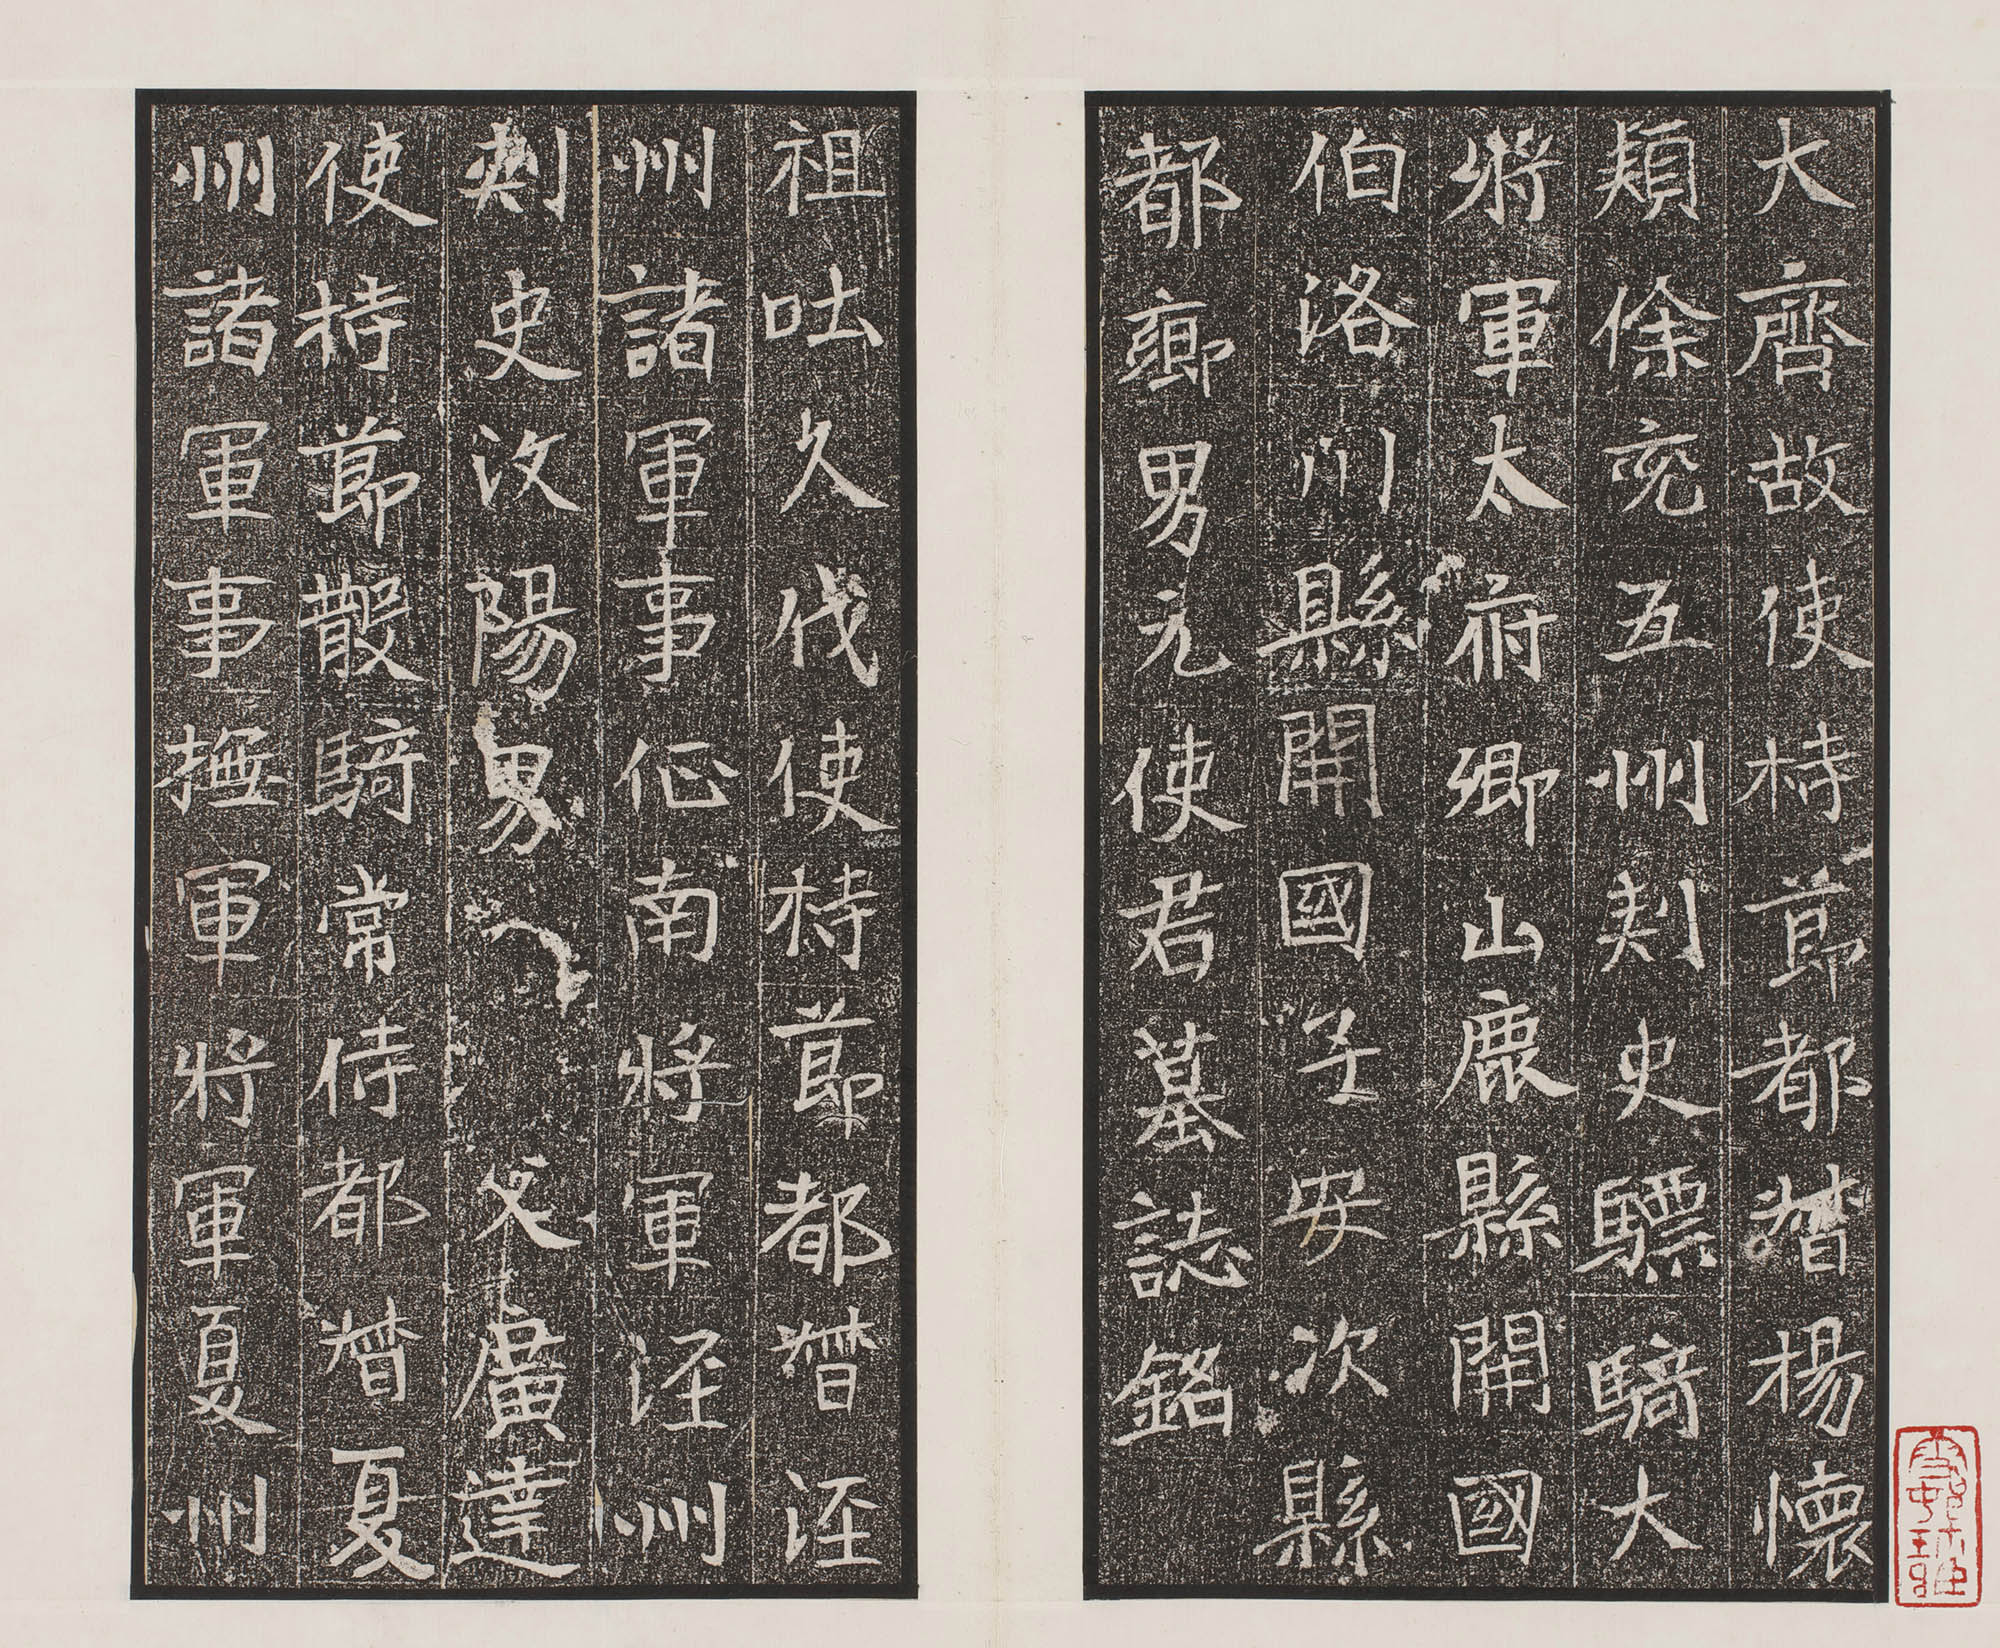 大齊故使持節都督楊懷
潁徐兗五州刺史驃騎大
將軍太府卿山鹿縣開國
伯洛川縣開國子安次縣
都鄉男元使君墓誌銘
祖吐久伐使持節都督涇
州諸軍事征南將軍涇州
刺史汶陽男父廣達
使持節散騎常侍都督夏
州諸軍事撫軍將軍夏州